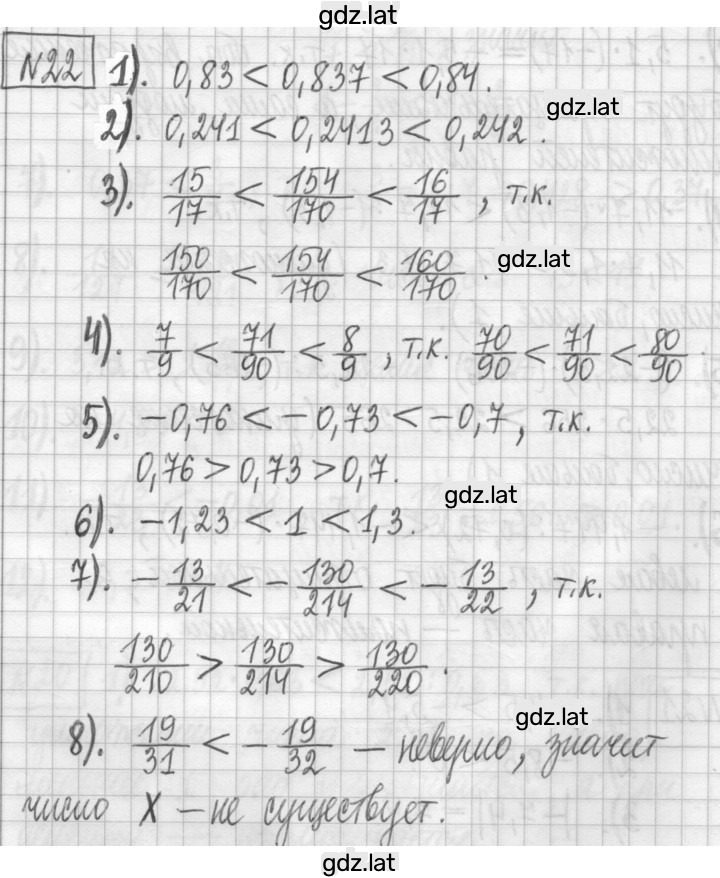 gdz.lat
№22 1). 0,83 < 0,837 < 0,84.
gdz.lat
2). 0,241 < 0,2413 < 0,242.
3). 15/17 < 154/170 < 16/17, т.к.
150/170 < 154/170 < 160/170. gdz.lat
4). 7/9 < 71/90 < 8/9, т.к. 70/90 < 71/90 < 80/90
5). -0,76 < -0,73 < -0,7, т.к.
0,76 > 0,73 > 0,7.
gdz.lat
6). -1,23 < 1 < 1,3.
7). -13/21 < -130/214 < -13/22, т.к.
130/210 > 130/214 > 130/220.
gdz.lat
8). 19/31 < -19/32 — неверно, значит
число X — не существует.
gdz.lat